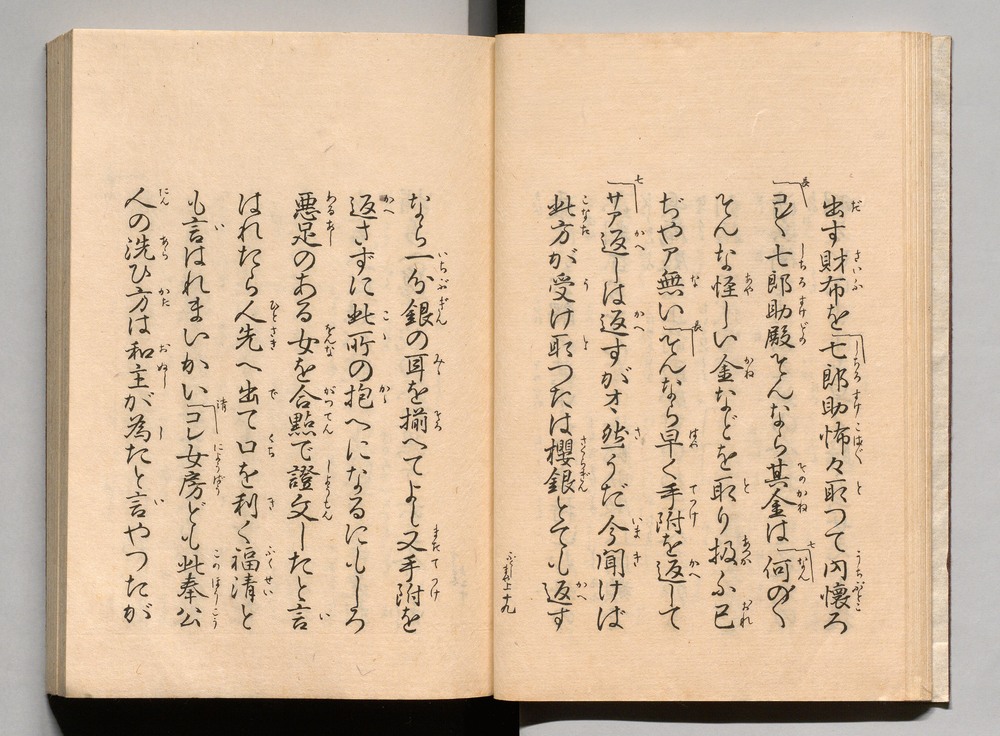 出す財布を「七郎助怖々取つて内懐ろ
「コレ〱七郎助殿そんなら其金は「何の〱
そんな怪しい金などを取り扱ふ己
ぢやア無い「そんなら早く手附を返して
「サア返しは返すがオヽ然うだ今聞けば
此方が受け取つたは櫻銀とても返す
なら一分銀の耳を揃へてよし又手附を
返さずに此所の抱へになるにもしろ
悪足のある女を合點で證文したと言
はれたら人先へ出て口を利く福清と
も言はれまいかい「コレ女房ども此奉公
人の洗ひ方は和主が為たと言やつたが